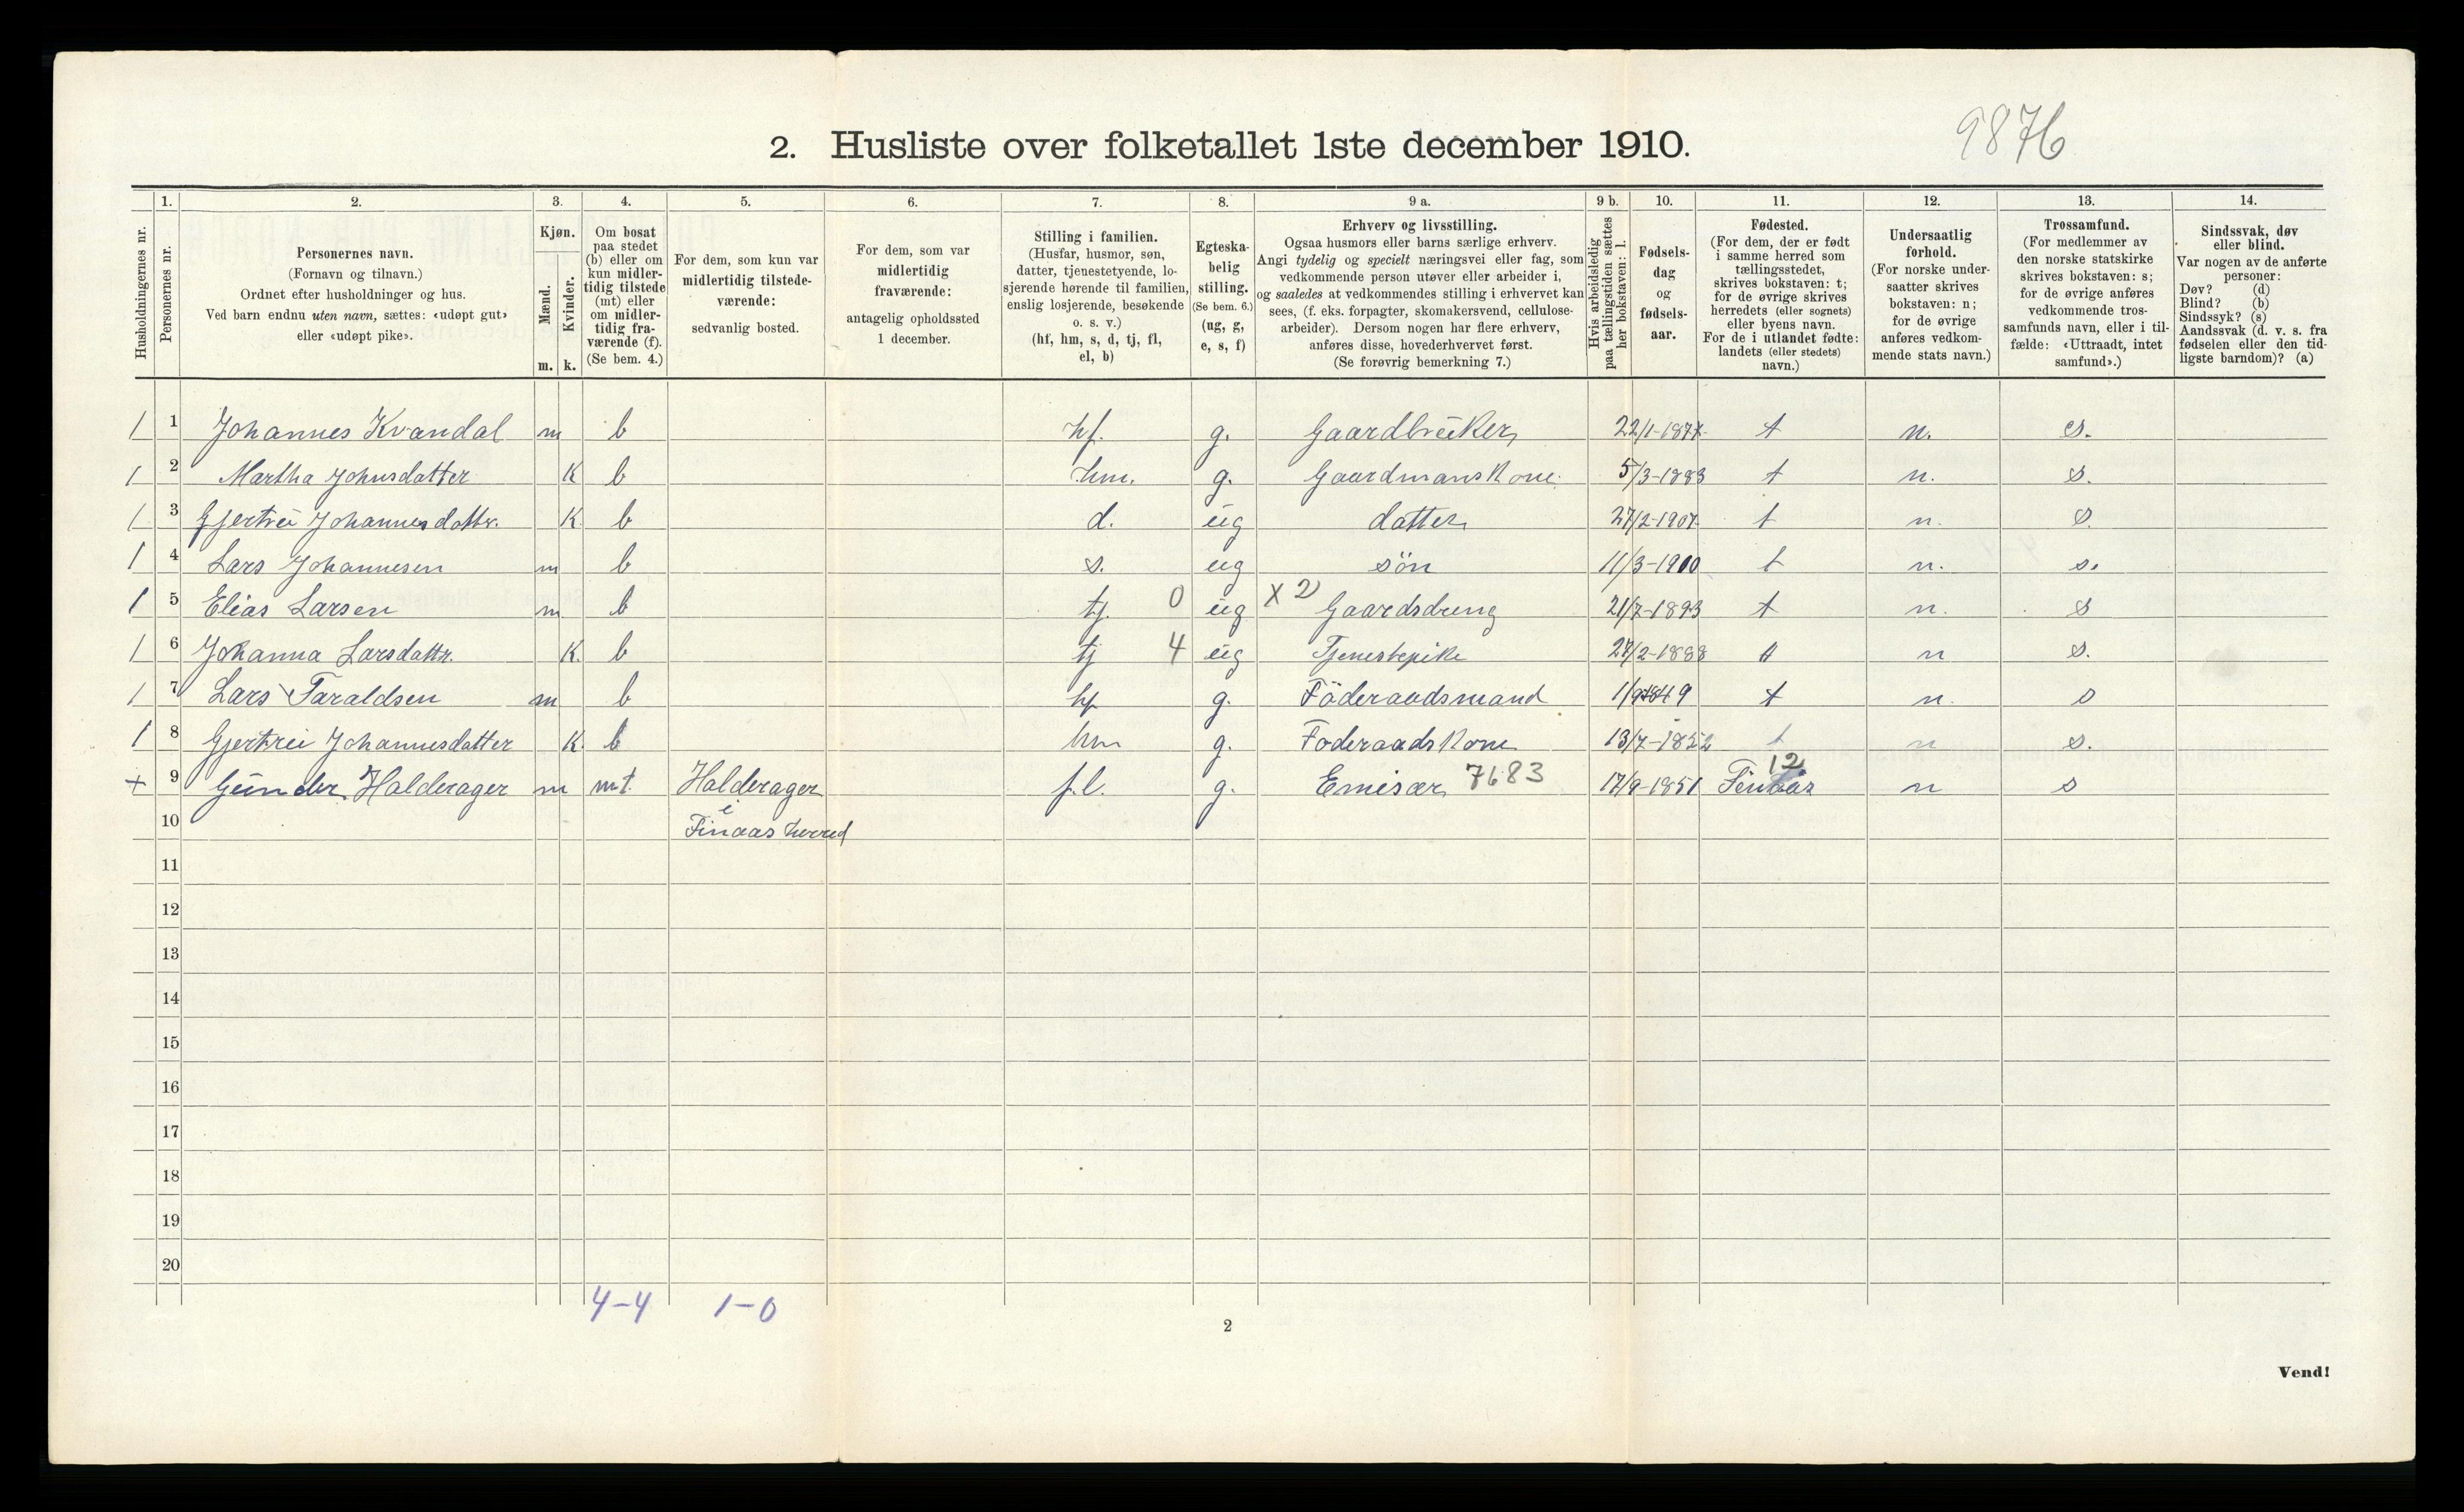 9876
2. Husliste over folketallet 1ste december 1910.
1. 2. 3. 4. 5. 6. 7. 8. 9 a. 9 b. 10. 11. 12. 13. 14.
Husholdningernes nr.
Personernes nr.
Personernes navn.
(Fornavn og tilnavn.)
Ordnet efter husholdninger og hus.
Ved barn endnu uten navn, sættes: «udøpt gut»
eller «udøpt pike».
Kjøn.
Mænd.
Kvinder.
m. k.
Om bosat
paa stedet
(b) eller om
kun midler-
tidig tilstede
(mt) eller
om midler-
tidig fra-
værende (f).
(Se bem. 4.)
For dem, som kun var
midlertidig tilstede-
værende:
sedvanlig bosted.
For dem, som var
midlertidig
fraværende:
antagelig opholdssted
1 december.
Stilling i familien.
(Husfar, husmor, søn,
datter, tjenestetyende, lo-
sjerende hørende til familien,
enslig losjerende, besøkende
o. s. v.)
(hf, hm, s, d, tj, fl,
el, b)
Egteska-
belig
stilling.
(Se bem. 6.)
(ug, g,
e, s, f)
Erhverv og livsstilling.
Ogsaa husmors eller barns særlige erhverv.
Angi tydelig og specielt næringsvei eller fag, som
vedkommende person utøver eller arbeider i,
og saaledes at vedkommendes stilling i erhvervet kan
sees, (f. eks. forpagter, skomakersvend, cellulose-
arbeider). Dersom nogen har flere erhverv,
anføres disse, hovederhvervet først.
(Se forøvrig bemerkning 7.)
Hvis arbeidsledig
paa tællingstiden sættes
her bokstaven: l.
Fødsels-
dag
og
fødsels-
aar.
Fødested.
(For dem, der er født
i samme herred som
tællingsstedet,
skrives bokstaven: t;
for de øvrige skrives
herredets (eller sognets)
eller byens navn.
For de i utlandet fødte:
landets (eller stedets)
navn.)
Undersaatlig
forhold.
(For norske under-
saatter skrives
bokstaven: n;
for de øvrige
anføres vedkom-
mende stats navn.)
Trossamfund.
(For medlemmer av
den norske statskirke
skrives bokstaven: s;
for de øvrige anføres
vedkommende tros-
samfunds navn, eller i til-
fælde: «Uttraadt, intet
samfund».)
Sindssvak, døv
eller blind.
Var nogen av de anførte
personer:
Døv? (d)
Blind? (b)
Sindssyk? (s)
Aandssvak (d. v. s. fra
fødselen eller den tid-
ligste barndom)? (a)
1 1 Johannes Kvandal m b hf. g. Gaardbrüker 22/1-1877 t n. s.
1 2 Martha Johnsdatter K b hm. g. Gaardmanskone 5/3-1883 t n. s.
1 3 Gjertrü Johannesdattr. K. b d. üg datter 27/2-1907 t n. s.
1 4 Lars Johannesen m b s. üg sön 11/3-1910 t n. s.
1 5 Elias Larsen m b tj. 0 üg X 2 Gaardsdreng 21/7-1893 t n. s
1 6 Johanna Larsdattr. K. b tj 4 üg Tjenestepike 2/2-1888 t n s.
1 7 Lars Taraldsen m b hf g. Föderaadsmand 1/9 1849 t n. s
1 8 Gjertrü Johannesdatter K. b hm g. Foderaadskone 13/7-1852 t n s.
+ 9 Günder Halderager m mt. Halderager f.l. g. Emisær 7683 17/9-1851 12 n s
10 i
Finaas herred
11
12
13
14
15
16
17
18
19
20
4-4 1-0
2
Vend!